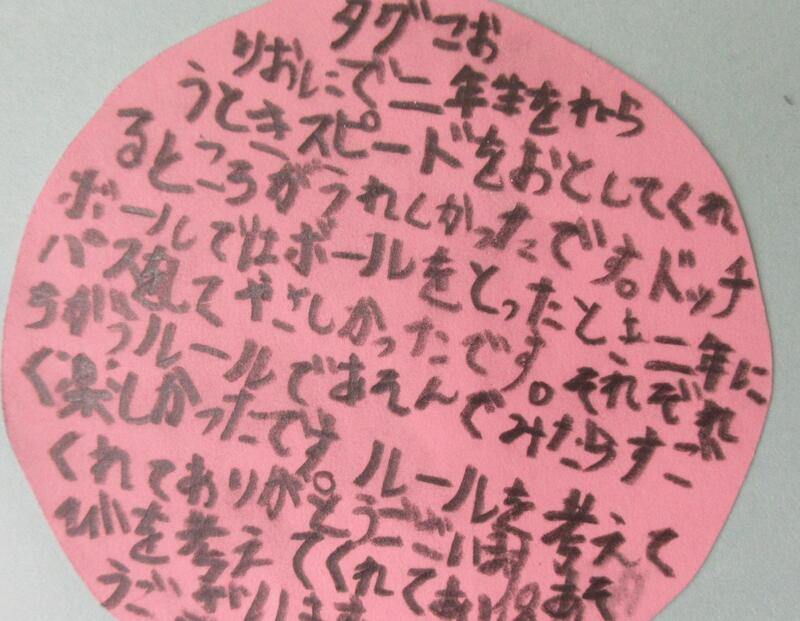 タグこお
りおにで二年生をねら
うときスピードをおとしてくれ
るところがうれしかったです。ドッチ
ボールではボールをとったとき二年に
パスしてやさしかったです。それぞれ
ちがうルールであそんでみたらすご
く楽しかったです。ルールを考えて
くれてありがとうござい あそ
びを考えてくれてあり
うございます